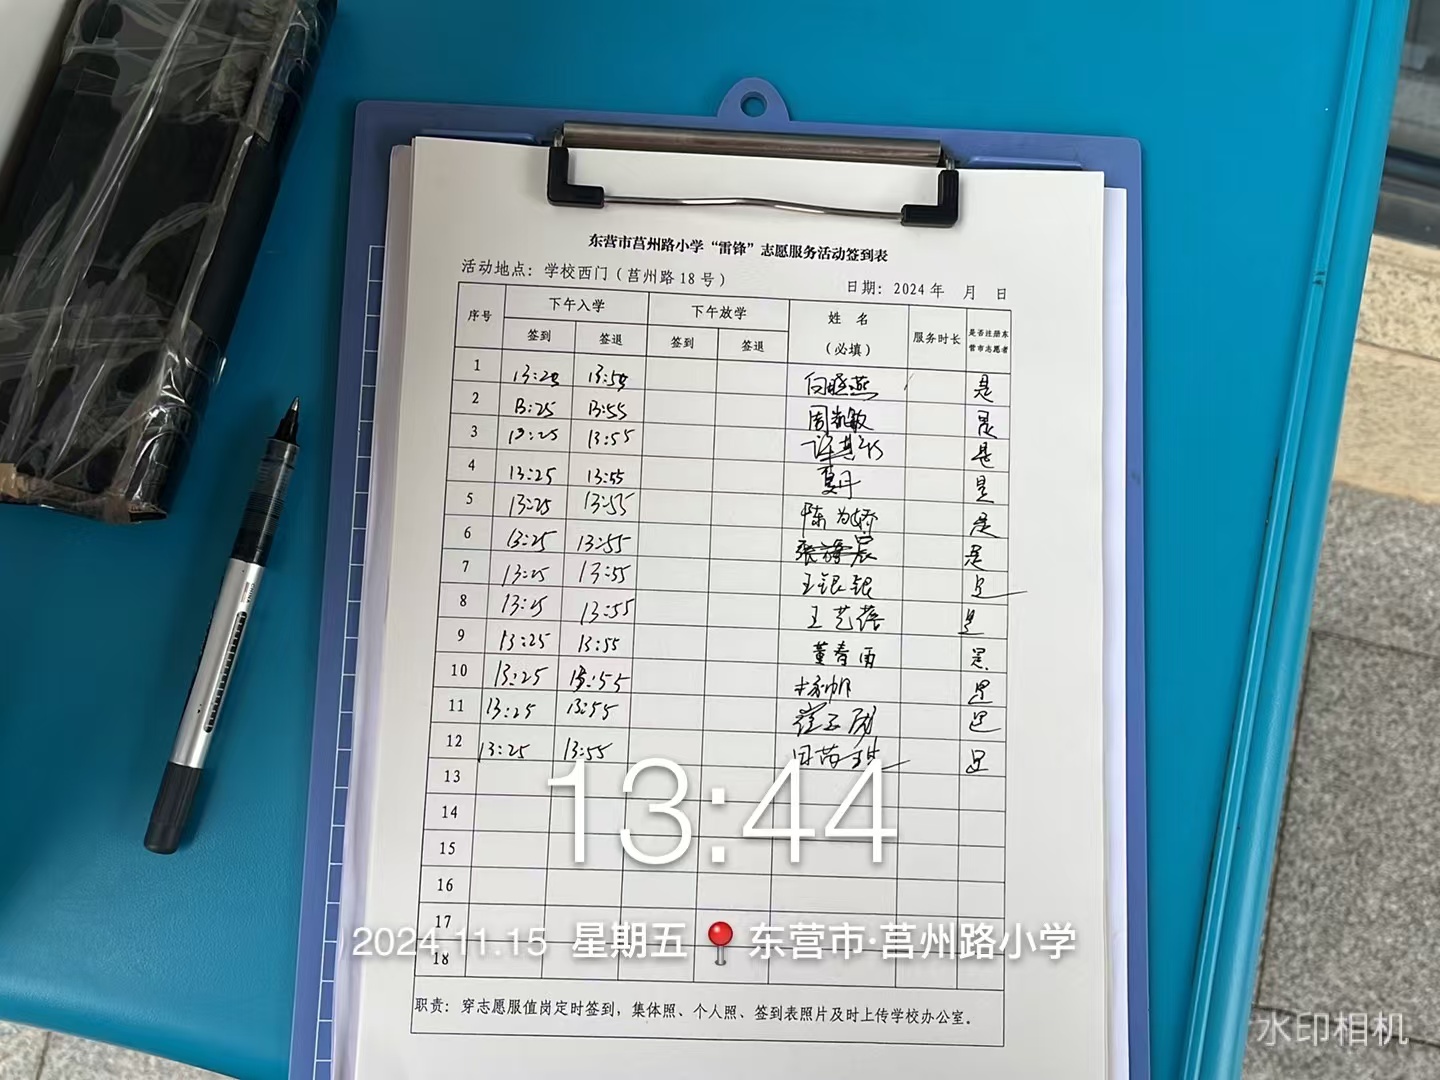 东营市莒州路小学“雷锋”志愿服务活动签到表
活动地点：学校西门（莒州路18号） 日期：2024年 月 日
序号 下午入学 下午放学 姓 名（必填） 服务时长 是否注册东营市志愿者
签到 签退 签到 签退
1 13:25 13:55 是
2 13:25 13:55 周凯敏 是
3 13:25 13:55 是
4 13:25 13:55 夏丹 是
5 13:25 13:55 陈为娇 是
6 13:25 13:55 是
7 13:25 13:55 王银银 是
8 13:25 13:55 王艺蓓 是
9 13:25 13:55 董春雨 是
10 13:25 13:55 杨帆 是
11 13:25 13:55 是
12 13:25 13:55 是
13
14
15
16
17
18
13:44
2024.11.15 星期五 东营市·莒州路小学
职责：穿志愿服值岗定时签到，集体照、个人照、签到表照片及时上传学校办公室。
水印相机